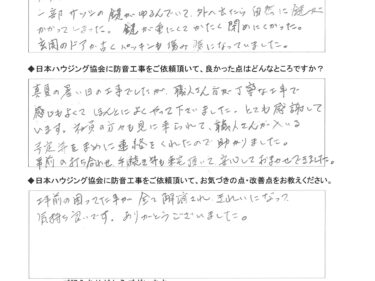 一部サッシの鍵がゆるんでいて、外へ出たら自然に鍵が
かかってしまった。鍵が重たくてかたく閉めにくかった。
玄関のドアが古くパッキンも傷み
になっていました。
◆日本ハウジング協会に防音工事をご依頼頂いて、良かった点はどんなところですか？
真夏の暑い日の工事でしたが、職人さん方が丁寧な工事で
感じもよくてほんとによくやって下さいました。とても感謝して
います。社員の方々も見に来られて、職人さんが入る
予定等をまめに連絡をくれたので助かりました。
事前の打ち合わせ、手続き等も頂いて安心しておまかせできました。
◆日本ハウジング協会に防音工事をご依頼頂いて、お気づきの点・改善点をお教えください。
工事前の困ってた事が全て解消され、きれいになって
気持ち良いです。ありがとうございました。